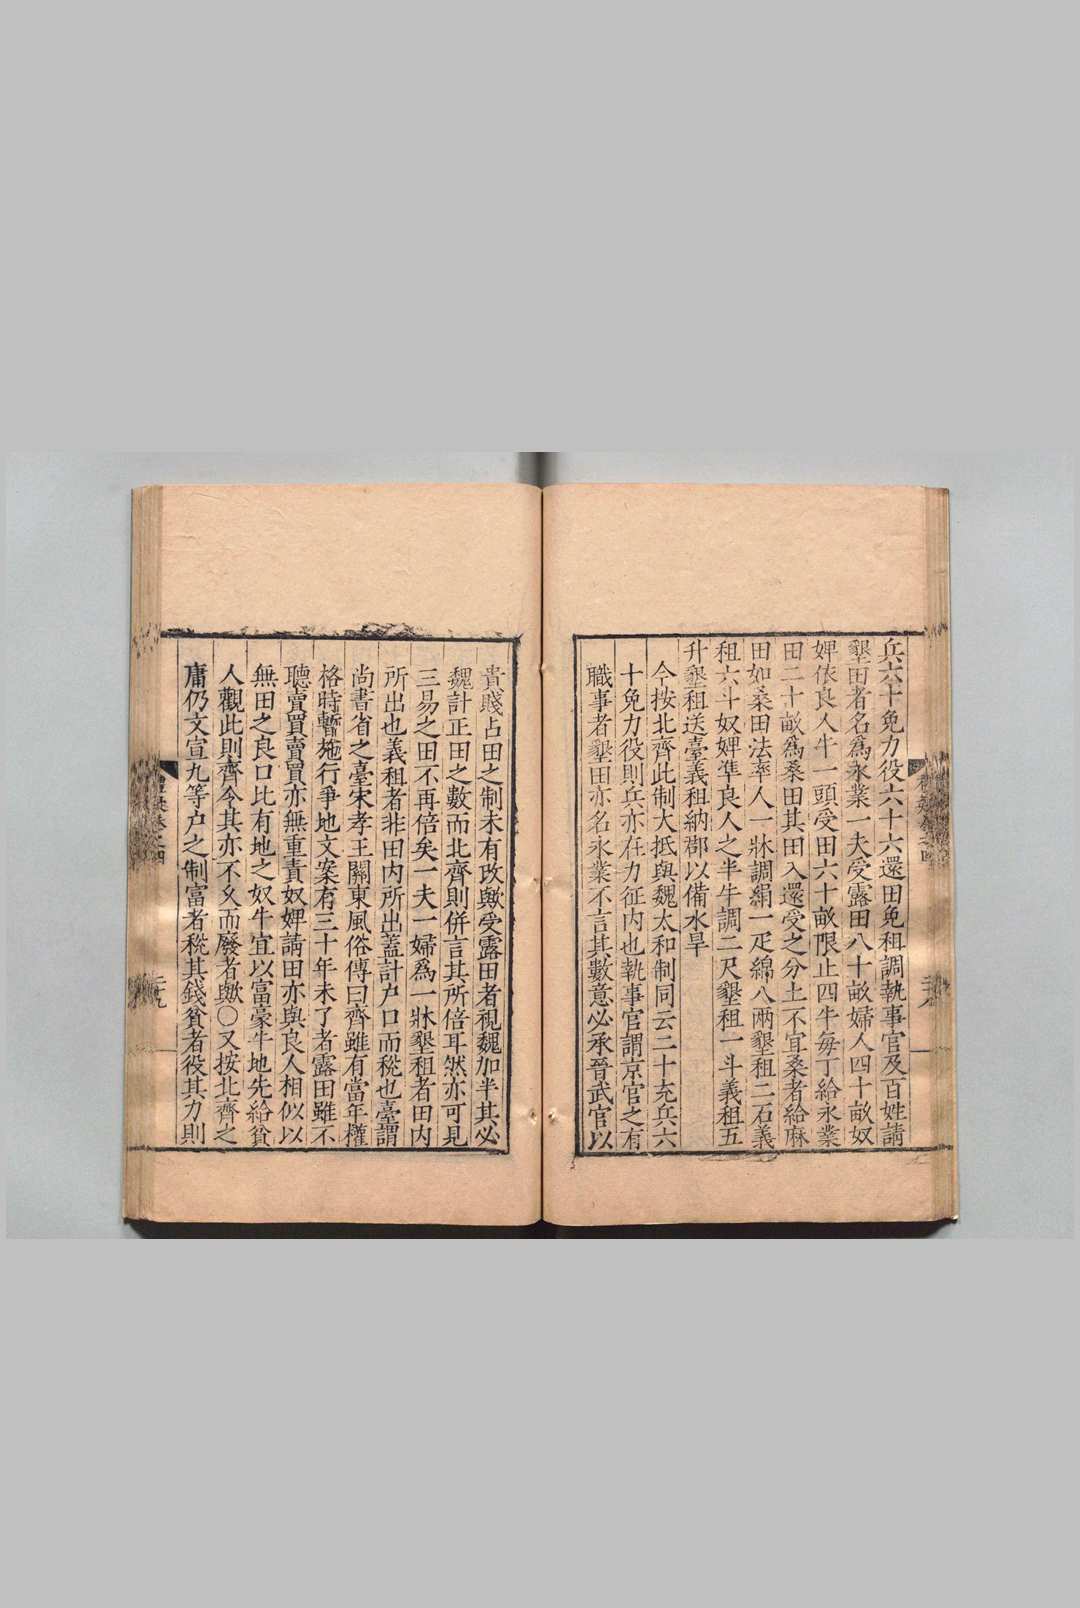 兵六十免力役六十六還田免租調執事官及百姓請
墾田者名爲永業一夫受露田八十畝婦人四十畝奴
婢依良人牛一頭受田六十畝限止四牛每丁給永業
田二十畝爲桑田其田入還受之分土不宜桑者給麻
田如桑田法率人一牀調絹一疋綿八兩墾租二石義
租六斗奴婢準良人之半牛調二尺墾租一斗義租五
升墾租送臺義租納郡以備水旱
今按北齊此制大抵與魏太和制同云二十充兵六
十免力役則兵亦在力征內也執事官謂京官之有
職事者墾田亦名永業不言其數意必承晉武官以
貴賤占田之制未有攺歟受露田者視魏加半其必
魏計正田之數而北齊則併言其所倍耳然亦可見
三易之田不再倍矣一夫一婦爲一牀墾租者田內
所出也義租者非田內所出蓋計户口而稅也臺謂
尚書省之臺宋孝王關東風俗傳曰齊雖有當年權
格時暫施行爭地文案有三十年未了者露田雖不
聽賣買賣買亦無重責奴婢請田亦與良人相似以
無田之良口比有地之奴牛宜以富豪牛地先給貧
人觀此則齊令其亦不乆而廢者歟○又按北齊之
庸仍文宣九等户之制富者稅其錢貧者役其力則
禮疑卷之四
二十九